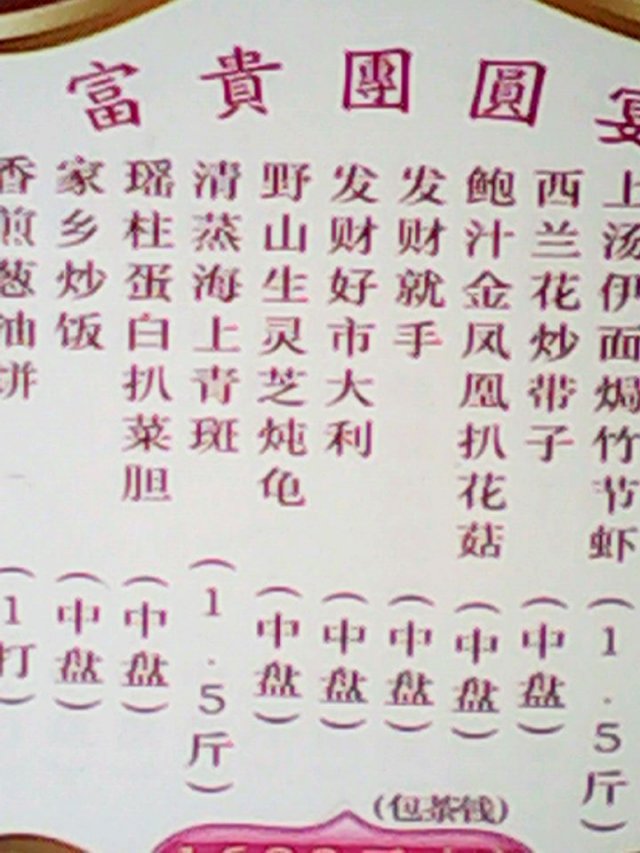 富貴團圓宴
上汤伊面焗竹节虾(1.5斤)
西兰花炒带子(中盘)
鲍汁金凤凰扒花菇(中盘)
发财就手(中盘)
发财好市大利(中盘)
野山生灵芝炖龟(中盘)
清蒸海上青斑(1.5斤)
瑶柱蛋白扒菜胆(中盘)
家乡炒饭(中盘)
香煎葱油饼(1打)
(包茶钱)